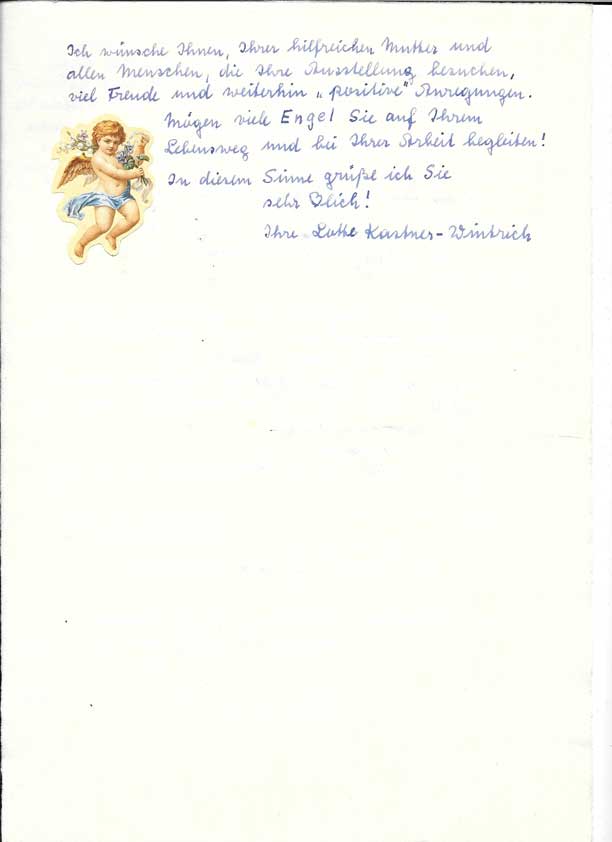 Ich wünsche Ihnen, Ihrer hilfreichen Mutter und
allen Menschen, die Ihre Ausstellung besuchen,
viel Freude und weiterhin „positive" Anregungen.
Mögen viele Engel Sie auf Ihrem
Lebensweg und bei Ihrer Arbeit begleiten!
In diesem Sinne grüße ich Sie
sehr ♡lich!
Ihre Lotte Kastner-Wintrich